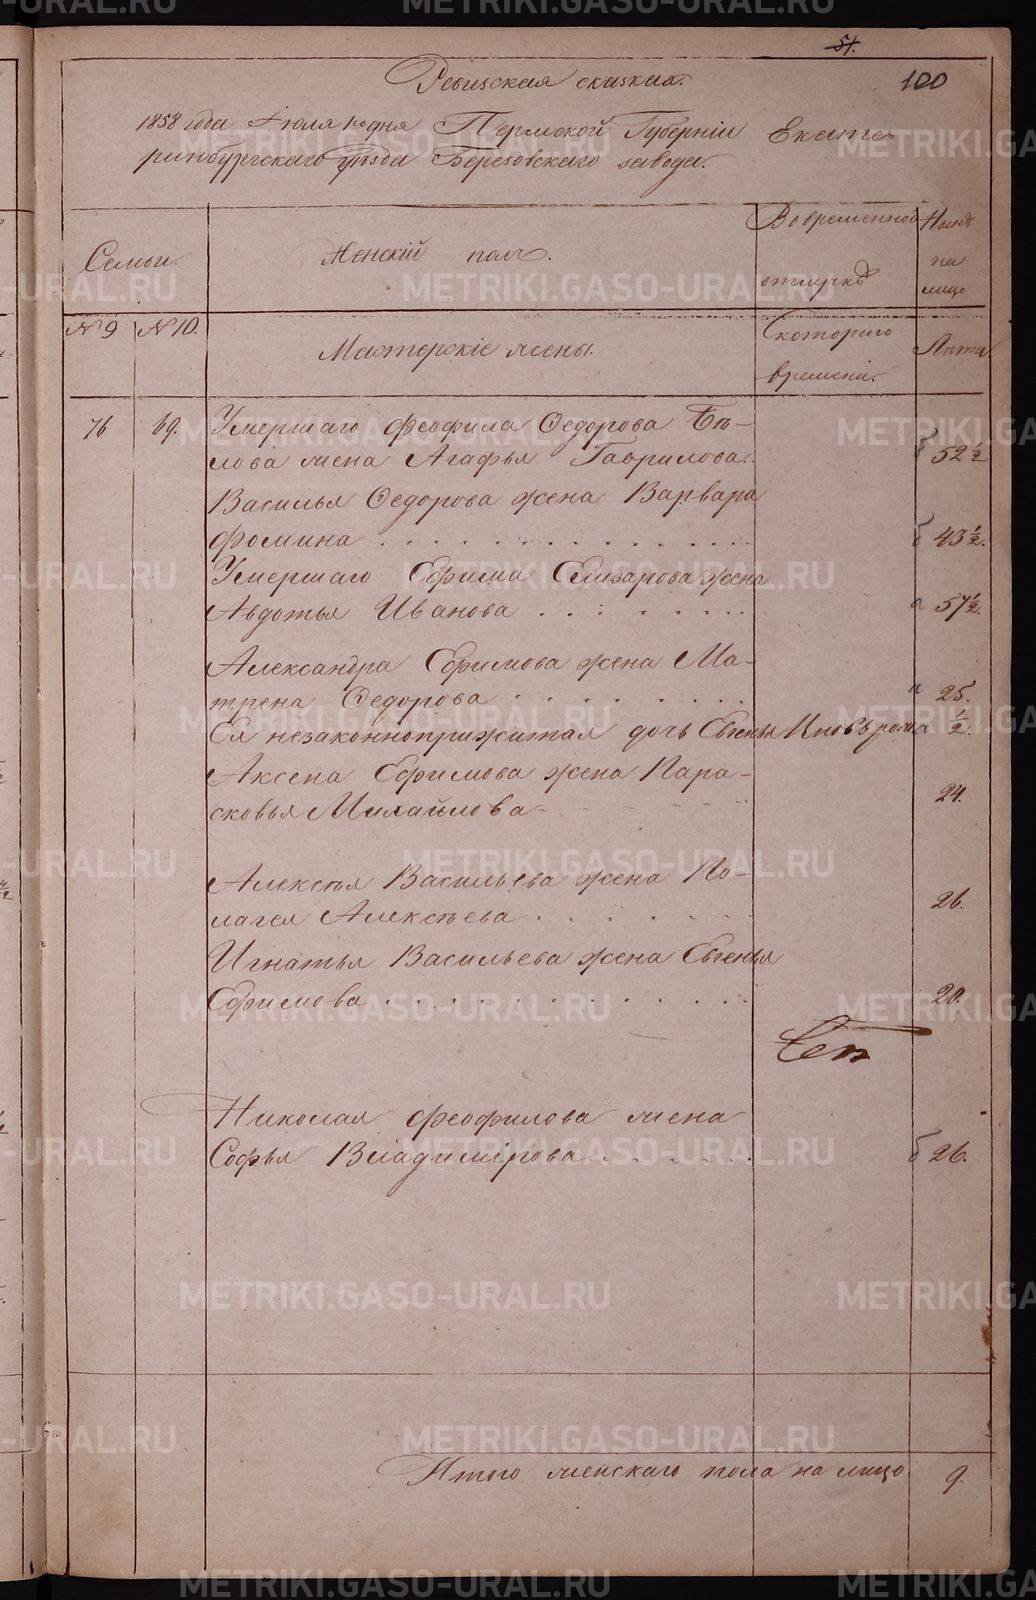 51.
100
Ревизская сказка.
1858 года Июля 1го дня Пермской Губернiи Екате-
ринбургскаго уѣзда Березовскаго завода.
Семьи.
Женскiй полъ.
Во временной
отлучкѣ
Нынѣ
на
лицо
№ 9 № 10.
Мастерскiе жены.
С котораго
времени.
Лѣта
76 69. Умершаго Феофила Ѳедорова Бѣ-
лова жена Агафья Гаврилова. 52 ½
Василья Ѳедорова жена Варвара
Фомина 43 ½.
Умершаго Ефима Елизарова жена
Авдотья Иванова 57 ½.
Александра Ефимова жена Ма-
трена Ѳедорова 25.
Ея незаконноприжитая дочь Евгенья Вновь рожд ½.
Аксена Ефимова жена Пара-
сковья Михайлова 24.
Алексѣя Васильева жена Пе-
лагея Алексѣева 26.
Игнатья Васильева жена Евгенья
Ефимова 20.
Николая Феофилова жена
Софья Владимiрова б 26.
Итого женскаго пола на лицо 9.
METRIKI.GASO-URAL.RU